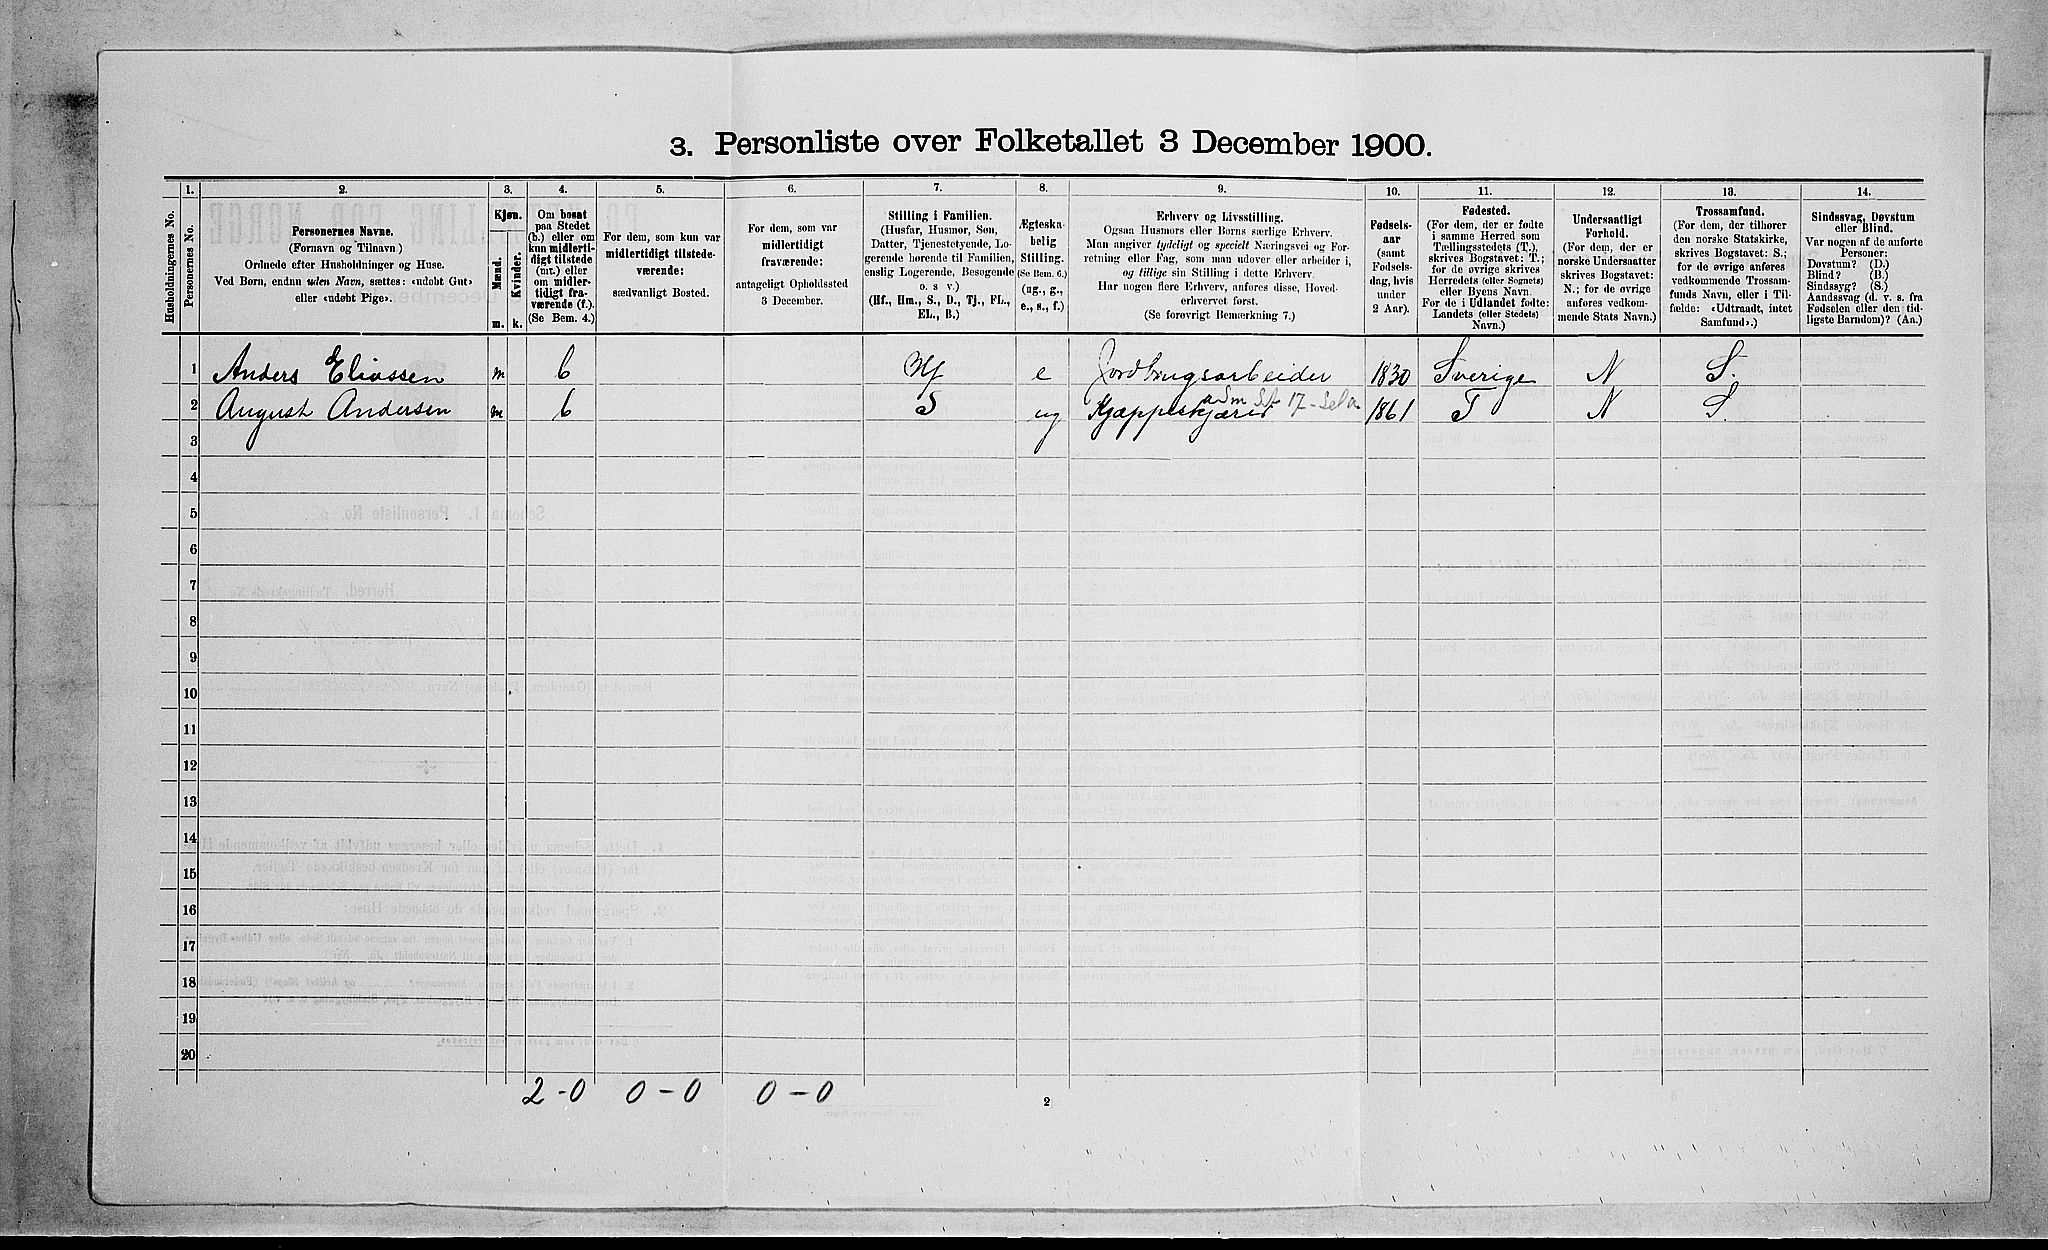 3. Personliste over Folketallet 3 December 1900.
1. 2. 3. 4. 5. 6. 7. 8. 9. 10. 11. 12. 13. 14.
Husholdningernes No.
Personernes No.
Personernes Navne.
(Fornavn og Tilnavn)
Ordnede efter Husholdninger og Huse.
Ved Børn, endnu uden Navn, sættes: «udøbt Gut»
eller «udøbt Pige».
Kjøn.
Mænd.
Kvinder.
m. k.
Om bosat
paa Stedet
(b.) eller om
kun midlerti-
digt tilstede
(mt.) eller
om midler-
tidigt fra-
værende (f.).
(Se Bem. 4.)
For dem, som kun var
midlertidigt tilstede-
værende:
sædvanligt Bosted.
For dem, som var
midlertidigt
fraværende:
antageligt Opholdssted
3 December.
Stilling i Familien.
(Husfar, Husmor, Søn,
Datter, Tjenestetyende, Lo-
gerende hørende til Familien,
enslig Logerende, Besøgende
o. s. v.)
(Hf., Hm., S., D., Tj., FL.,
EL., B.)
Ægteska-
belig
Stilling.
(Se Bem. 6.)
(ug., g.,
e., s., f.)
Erhverv og Livsstilling.
Ogsaa Husmors eller Børns særlige Erhverv.
Man angiver tydeligt og specielt Næringsvei og For-
retning eller Fag, som man udøver eller arbeider i,
og tillige sin Stilling i dette Erhverv.
Har nogen flere Erhverv, anføres disse, Hoved-
erhvervet først.
(Se forøvrigt Bemærkning 7.)
Fødsels-
aar
(samt
Fødsels-
dag, hvis
under
2 Aar).
Fødested.
(For dem, der er fødte
i samme Herred som
Tællingsstedets (T.),
skrives Bogstavet: T.;
for de øvrige skrives
Herredets (eller Sognets)
eller Byens Navn.
For de i Udlandet fødte:
Landets (eller Stedets)
Navn.)
Undersaatligt
Forhold.
(For dem, der er
norske Undersaatter
skrives Bogstavet:
N.; for de øvrige
anføres vedkom-
mende Stats Navn.)
Trossamfund.
(For dem, der tilhører
den norske Statskirke,
skrives Bogstavet: S.;
for de øvrige anføres
vedkommende Trossam-
funds Navn, eller i Til-
fælde: «Udtraadt, intet
Samfund».)
Sindssvag, Døvstum
eller Blind.
Var nogen af de anførte
Personer:
Døvstum? (D.)
Blind? (B.)
Sindssyg? (S.)
Aandssvag (d. v. s. fra
Fødselen eller den tid-
ligste Barndom)? (Aa.)
1 Anders Eliassen m b Hf e Jordbrugsarbeider 1830 Sverige N S.
2 August Andersen m b S ug 1861 T N S.
3
4
5
6
7
8
9
10
11
12
13
14
15
16
17
18
19
20
2-0 0-0 0-0
2